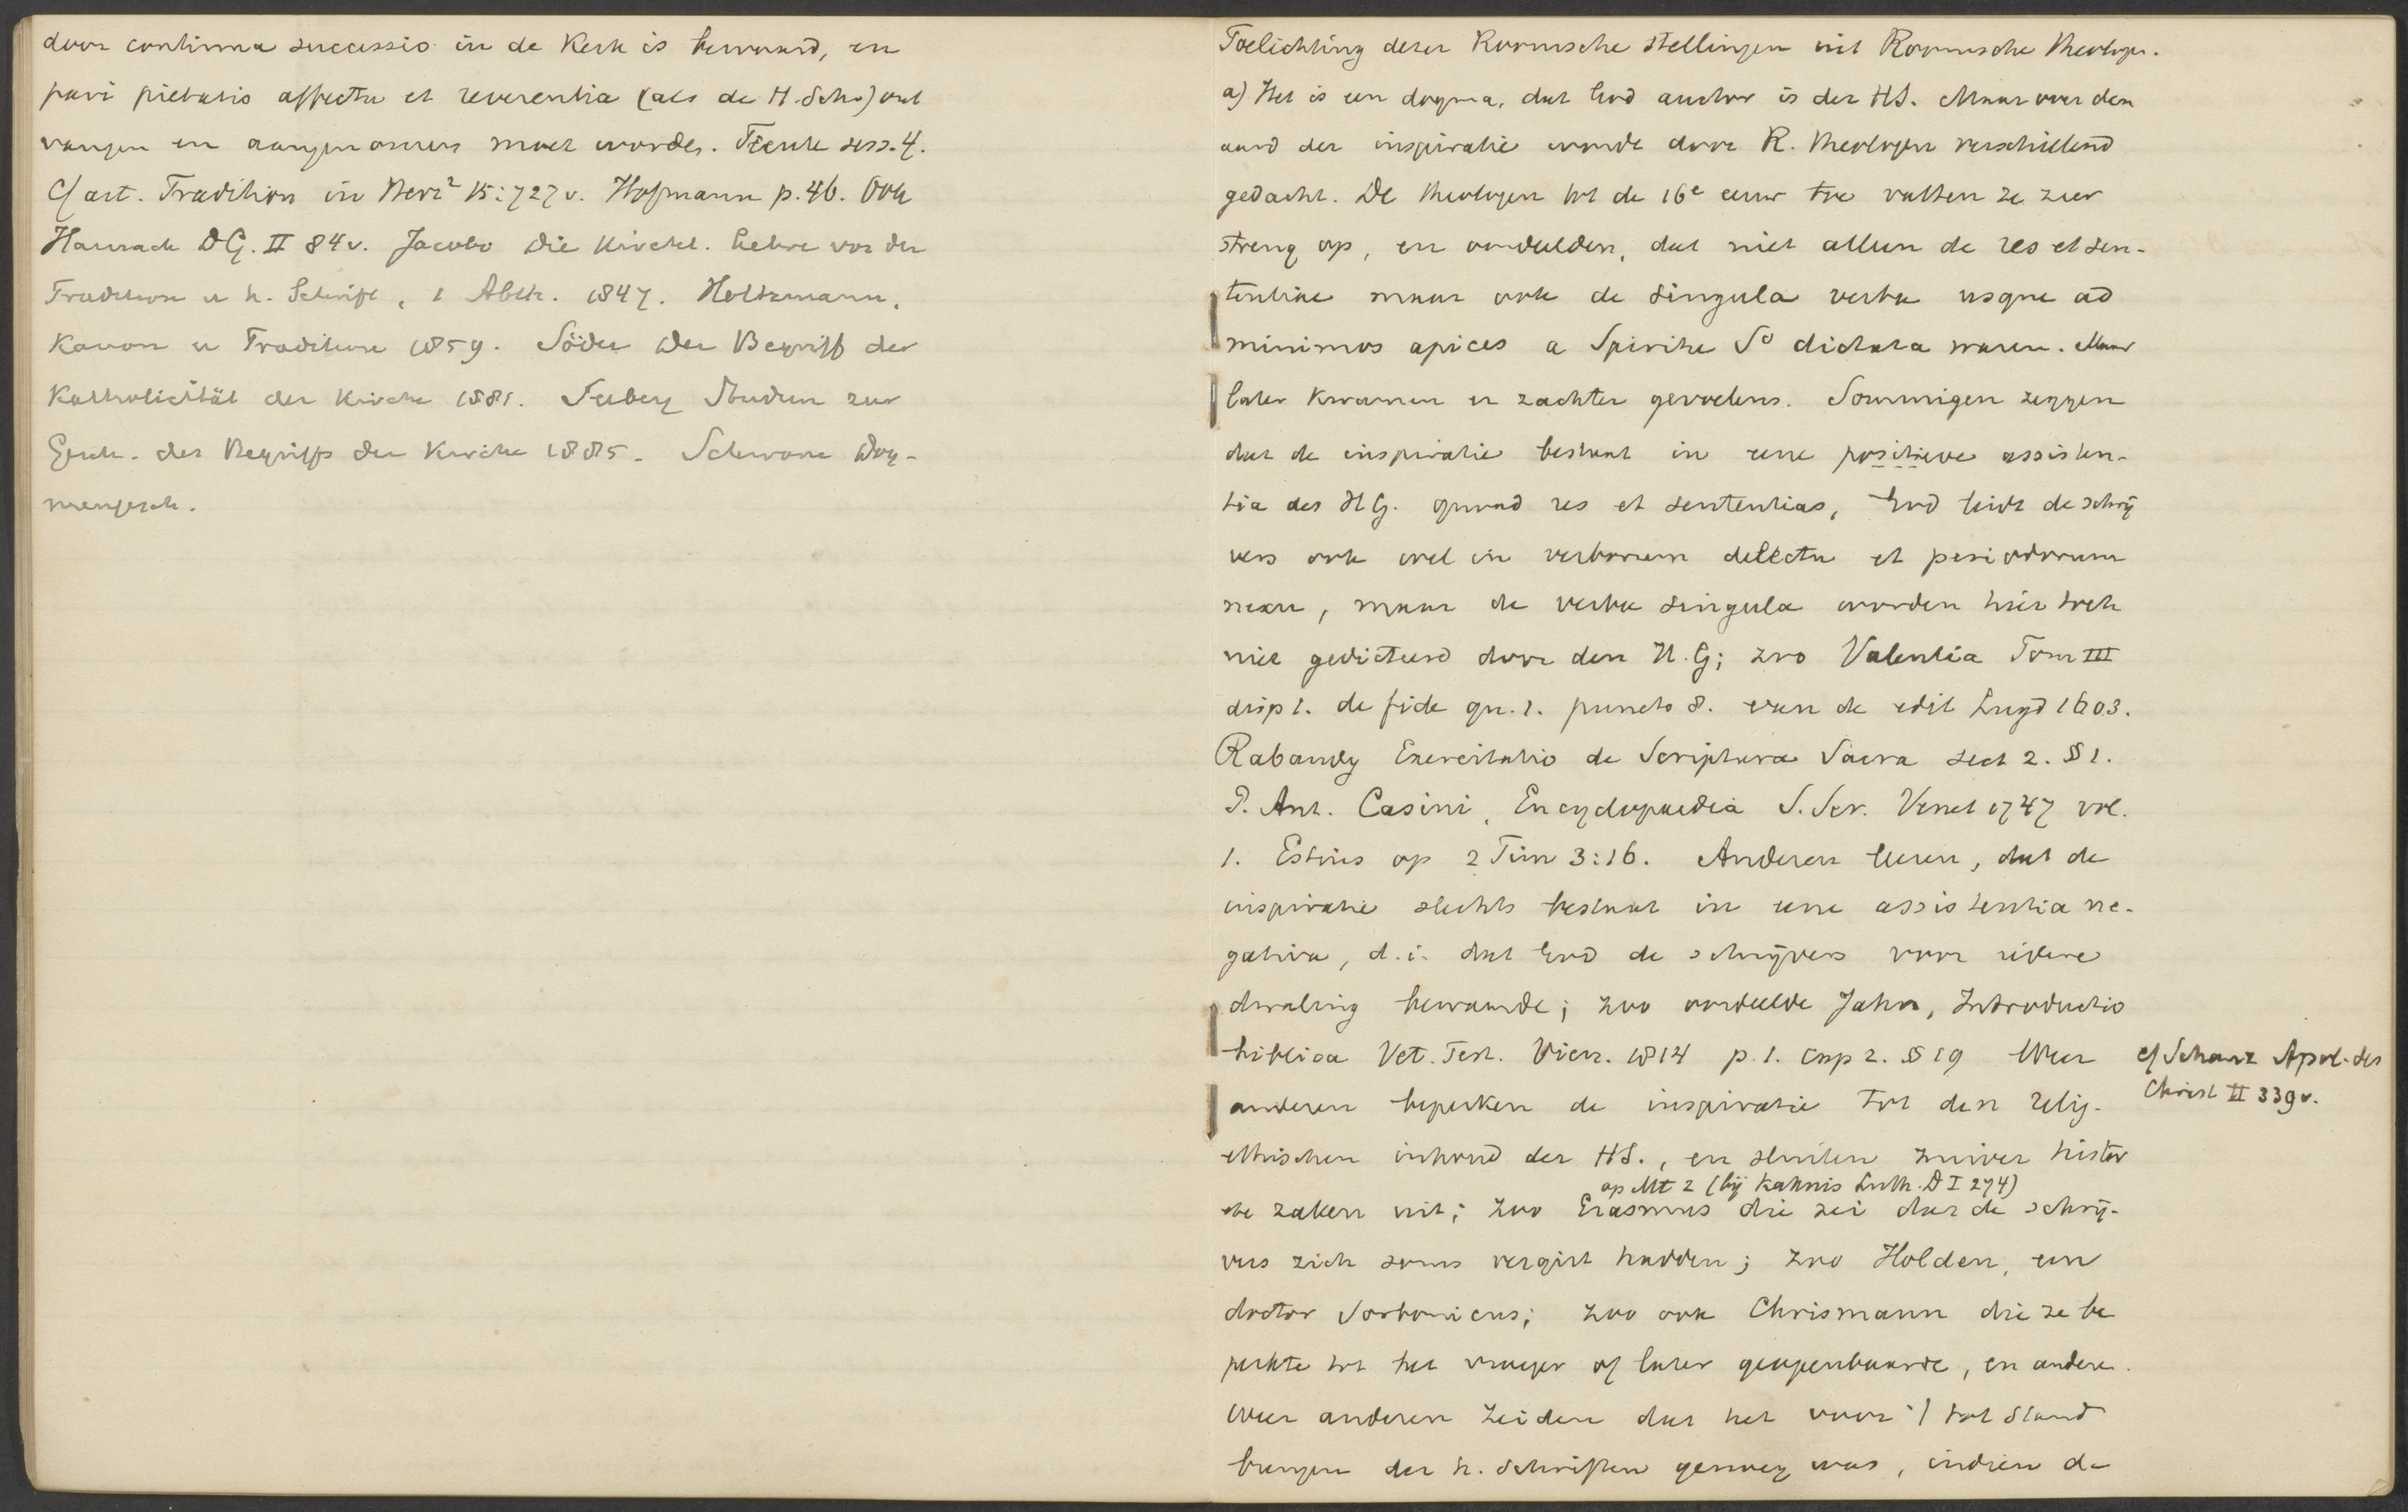 door continua successio in de Kerk is bewaard, en
pari pietatis affectu et reverentia (als de H. Schr.) ont
vangen en aangenomen moet worden. Trente sess. 4.
Cf art. Tradition in Herz² 15:727 v. Hofmann p. 46. Ook
Harnack DG. II 84 v. Jacobi Die Kirchl. Lehre von der
Tradition u h. Schrift, 1 Abth. 1847. Holtzmann,
Kanon u Tradition 1859. Söder Der Begriff der
Katholicität der Kirche 1881. Seeberg Studien zur
Gesch. des Begriffs der Kirche 1885. Schwane Dog-
mengesch.
Toelichting dezer Roomsche stellingen uit Roomsche theologen.
a) Het is een dogma, dat God auctor is der HS. Maar over den
aard der inspiratie werd door R. theologen verschillend
gedacht. De theologen tot de 16e eeuw toe vatten ze zeer
streng op, en oordeelden, dat niet alleen de res et sen-
tentiae maar ook de singula verba usque ad
minimos apices a Spiritu So dictata waren. Maar
later kwamen er zachter gevoelens. Sommigen zeggen
dat de inspiratie bestaat in eene positieve assisten-
tia des HG. quoad res et sententias, God leidt de schrij
vers ook wel in verborum delectu et periodorum
nexu, maar de verba singula worden hier toch
niet gedicteerd door den H.G; zoo Valentia Tom III
disp 1. de fide qu. 1. puncto 8. van de edit Lugd 1603.
Rabaudy Exercitatio de Scriptura Sacra sect 2. § 1.
P. Ant. Casini, Encyclopaedia S. Scr. Venet 1747 vol.
1. Estius op 2 Tim 3:16. Anderen leeren, dat de
inspiratie slechts bestaat in eene assistentia ne-
gativa, d.i. dat God de schrijvers voor iedere
dwaling bewaarde; zoo oordeelde Jahn, Introductio
biblica Vet. Test. Vien. 1814 p. 1. cap 2. § 19 Weer
cf Schanz Apol. des
Christ II 339 v.
anderen beperken de inspiratie tot den relig.
ethischen inhoud der HS., en sluiten zuiver histor
op Mt 2 (bij Kahnis Luth. D I 274)
sche zaken uit; zoo Erasmus die zei dat de schrij-
vers zich soms vergist hadden; zoo Holden, een
doctor Sorbonicus; zoo ook Chrismann die ze be
perkte tot het vroeger of later geopenbaarde, en andere.
Weer anderen zeiden dat het voor 't tot stand
brengen der h. Schriften genoeg was, indien de